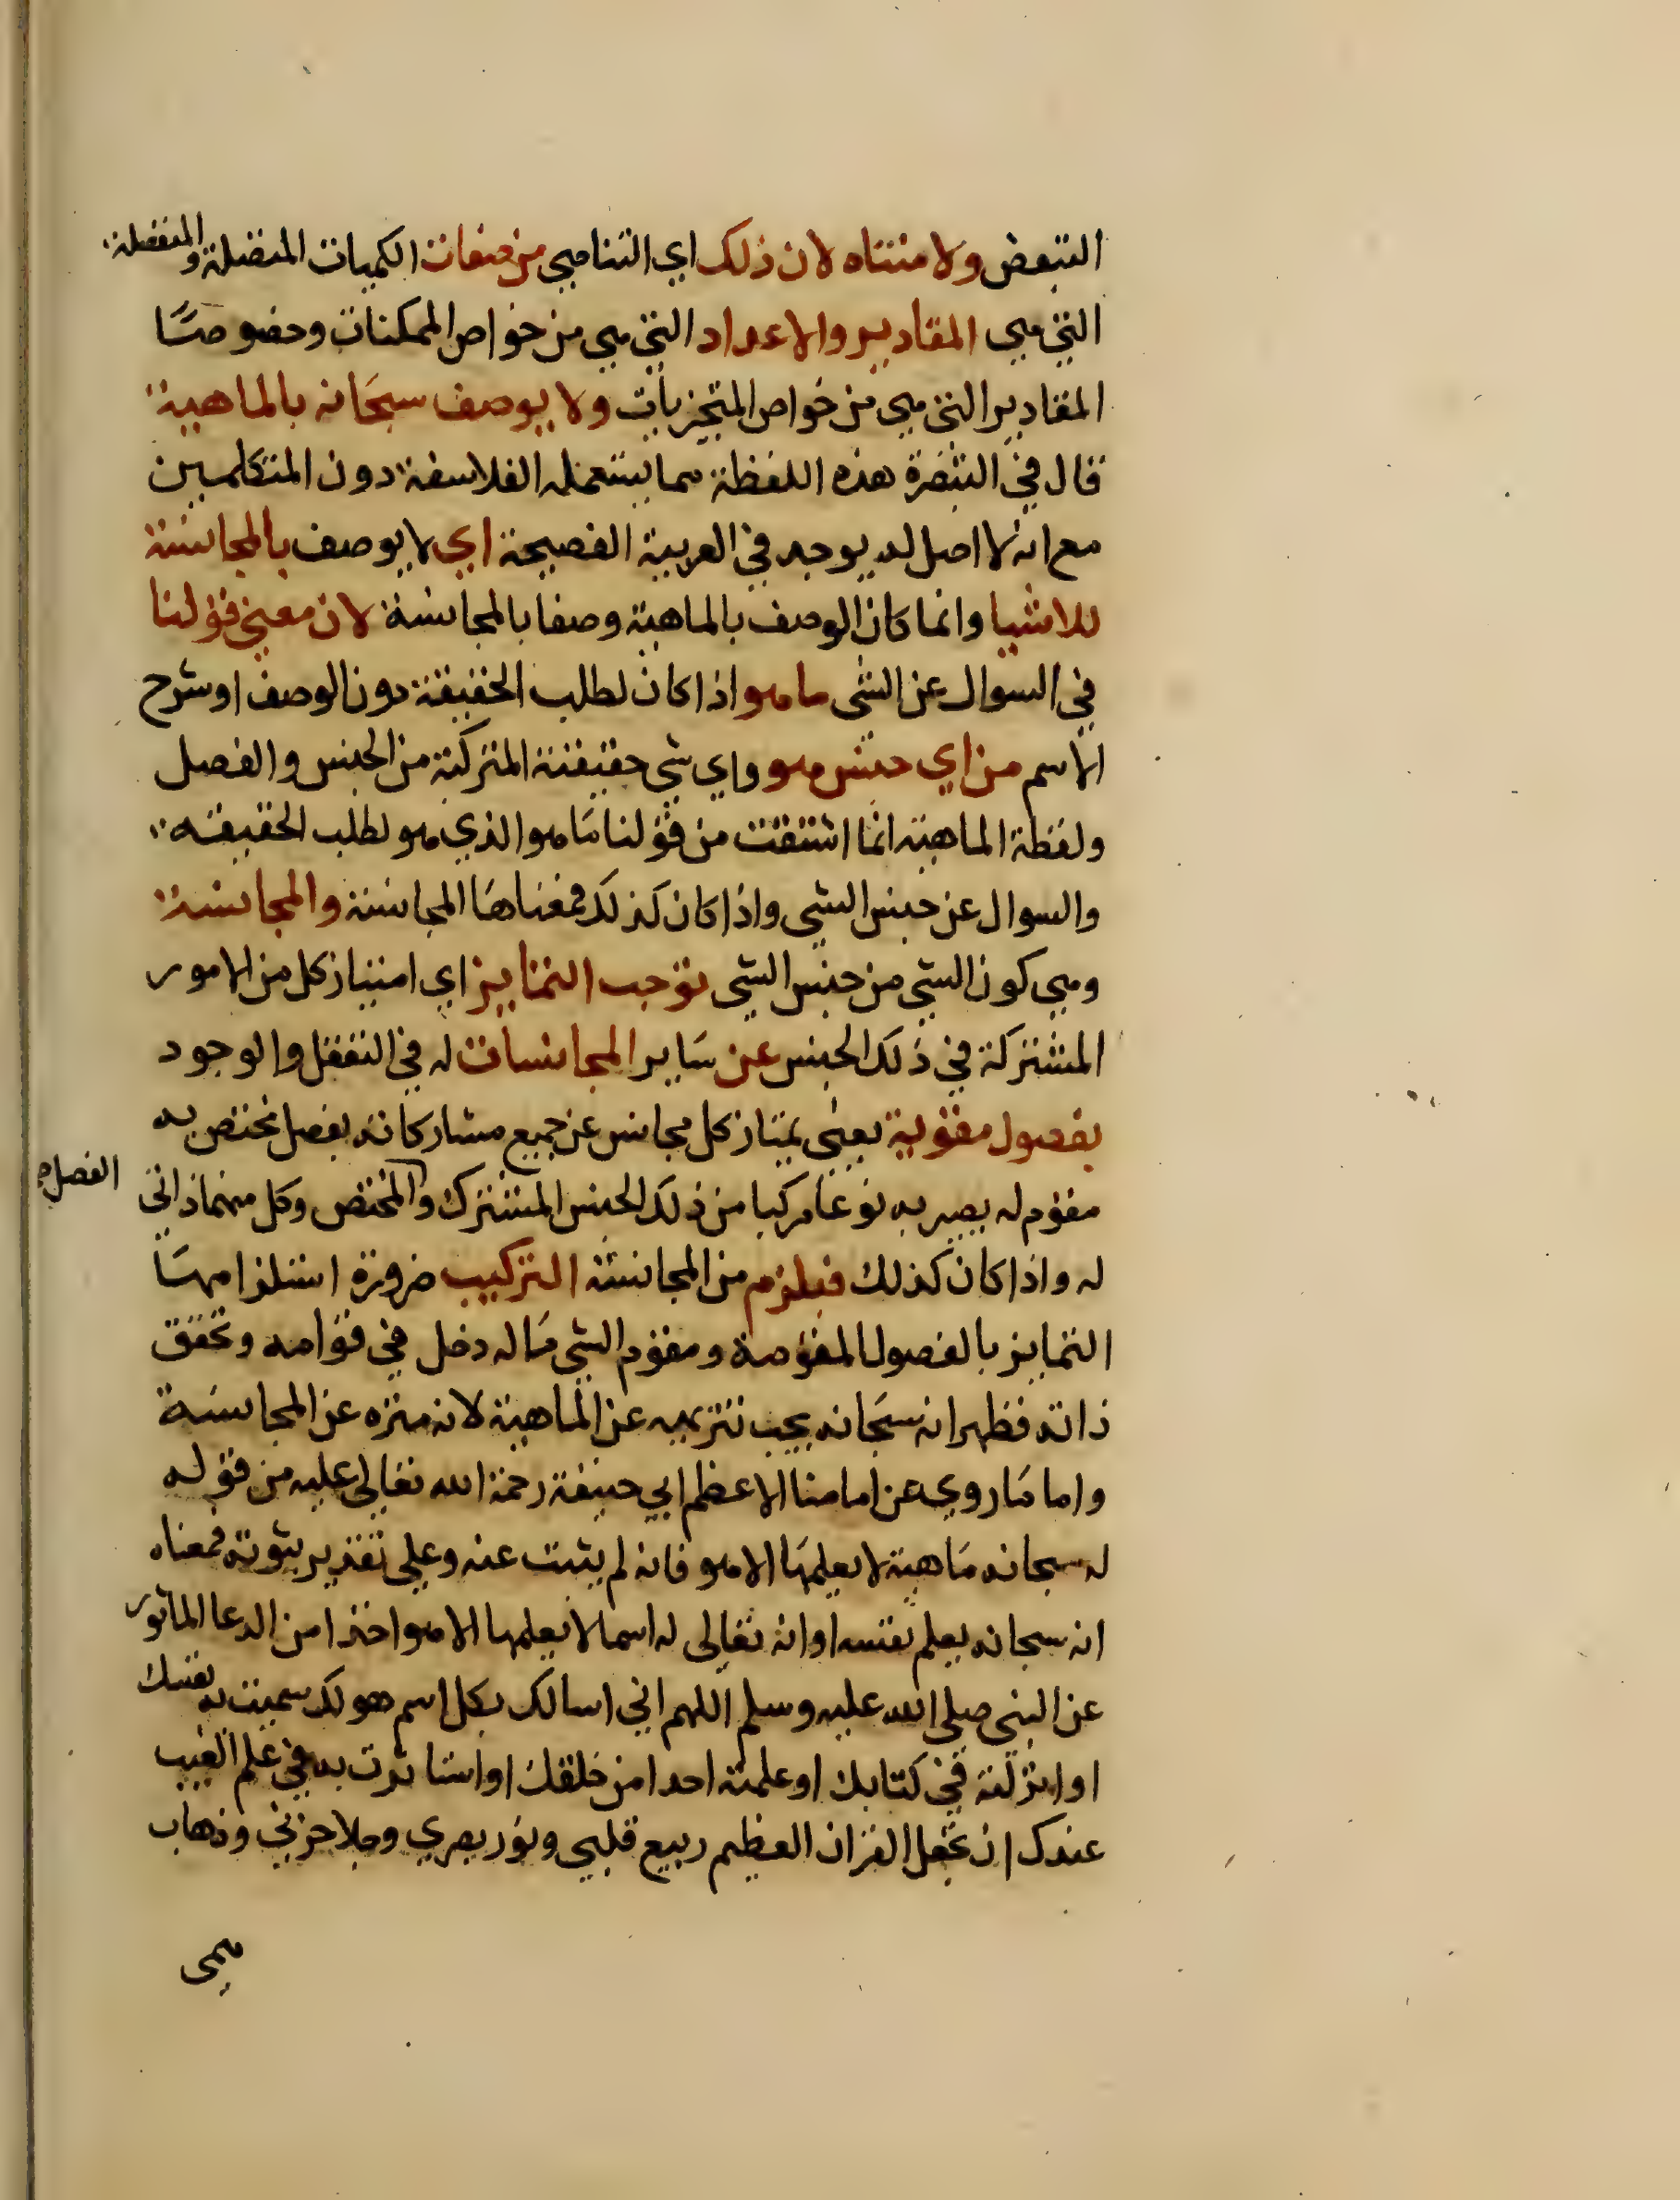 التبعض ولا متناه لان ذلك اي التناهي من صفات الكميات المتصلة والمنفصلة
التي هي المقادير والاعداد التي هي من خواص الممكنات وخصوصًا
المقادير التي هي من خواص المتجزيات ولا يوصف سبحانه بالماهية
قال في التبصرة هذه اللفظة مما يستعمله الفلاسفة دون المتكلمين
مع انه لا اصل له يوجد في العربية الفصيحة اي لا يوصف بالمجانسة
للاشيا وانما كان الوصف بالماهية وصفا بالمجانسة لان معنى قولنا
في السوال عن الشي ما هو اذا كان لطلب الحقيقة دون الوصف او شرح
الاسم من اي جنس هو واي شي حقيقته المتركبة من الجنس والفصل
ولفظة الماهية انما اشتقت من قولنا ما هو الذي هو لطلب الحقيقه
والسوال عن جنس الشي واذا كان كذلك فمعناها المجانسة والمجانسة
وهي كون الشي من جنس الشي توجب التمايز اي امتياز كل من الامور
المشتركة في ذلك الجنس عن ساير المجانسات له في التعقل والوجود
بفصول مقومة يعني يمتاز كل مجانس عن جميع مشاركاته بفصل مختص به
مقوم له يصير به نوعا مركبا من ذلك الجنس المشترك والمختص وكل منهما ذاتي
الفصل
له واذا كان كذلك فيلزم من المجانسة التركيب ضرورة استلزامها
التمايز بالفصول المقومة ومقوم الشي ما له دخل في قوامه وتحقق
ذاته فظهر انه سبحانه يجب تنزيهه عن الماهية لانه منزه عن المجانسة
واما ما روي عن امامنا الاعظم ابي حنيفة رحمة الله تعالى عليه من قوله
له سبحانه ماهية لا يعلمها الا هو فانه لم يثبت عنه وعلى تقدير ثبوته فمعناه
انه سبحانه يعلم نفسه او انه تعالى له اسما لا يعلمها الا هو اخذا من الدعا الماثور
عن النبي صلى الله عليه وسلم اللهم اني اسالك بكل اسم هو لك سميت به نفسك
او انزلته في كتابك او علمته احدا من خلقك او استاثرت به في علم الغيب
عندك ان تجعل القران العظيم ربيع قلبي ونور بصري وجلا حزني وذهاب
همي